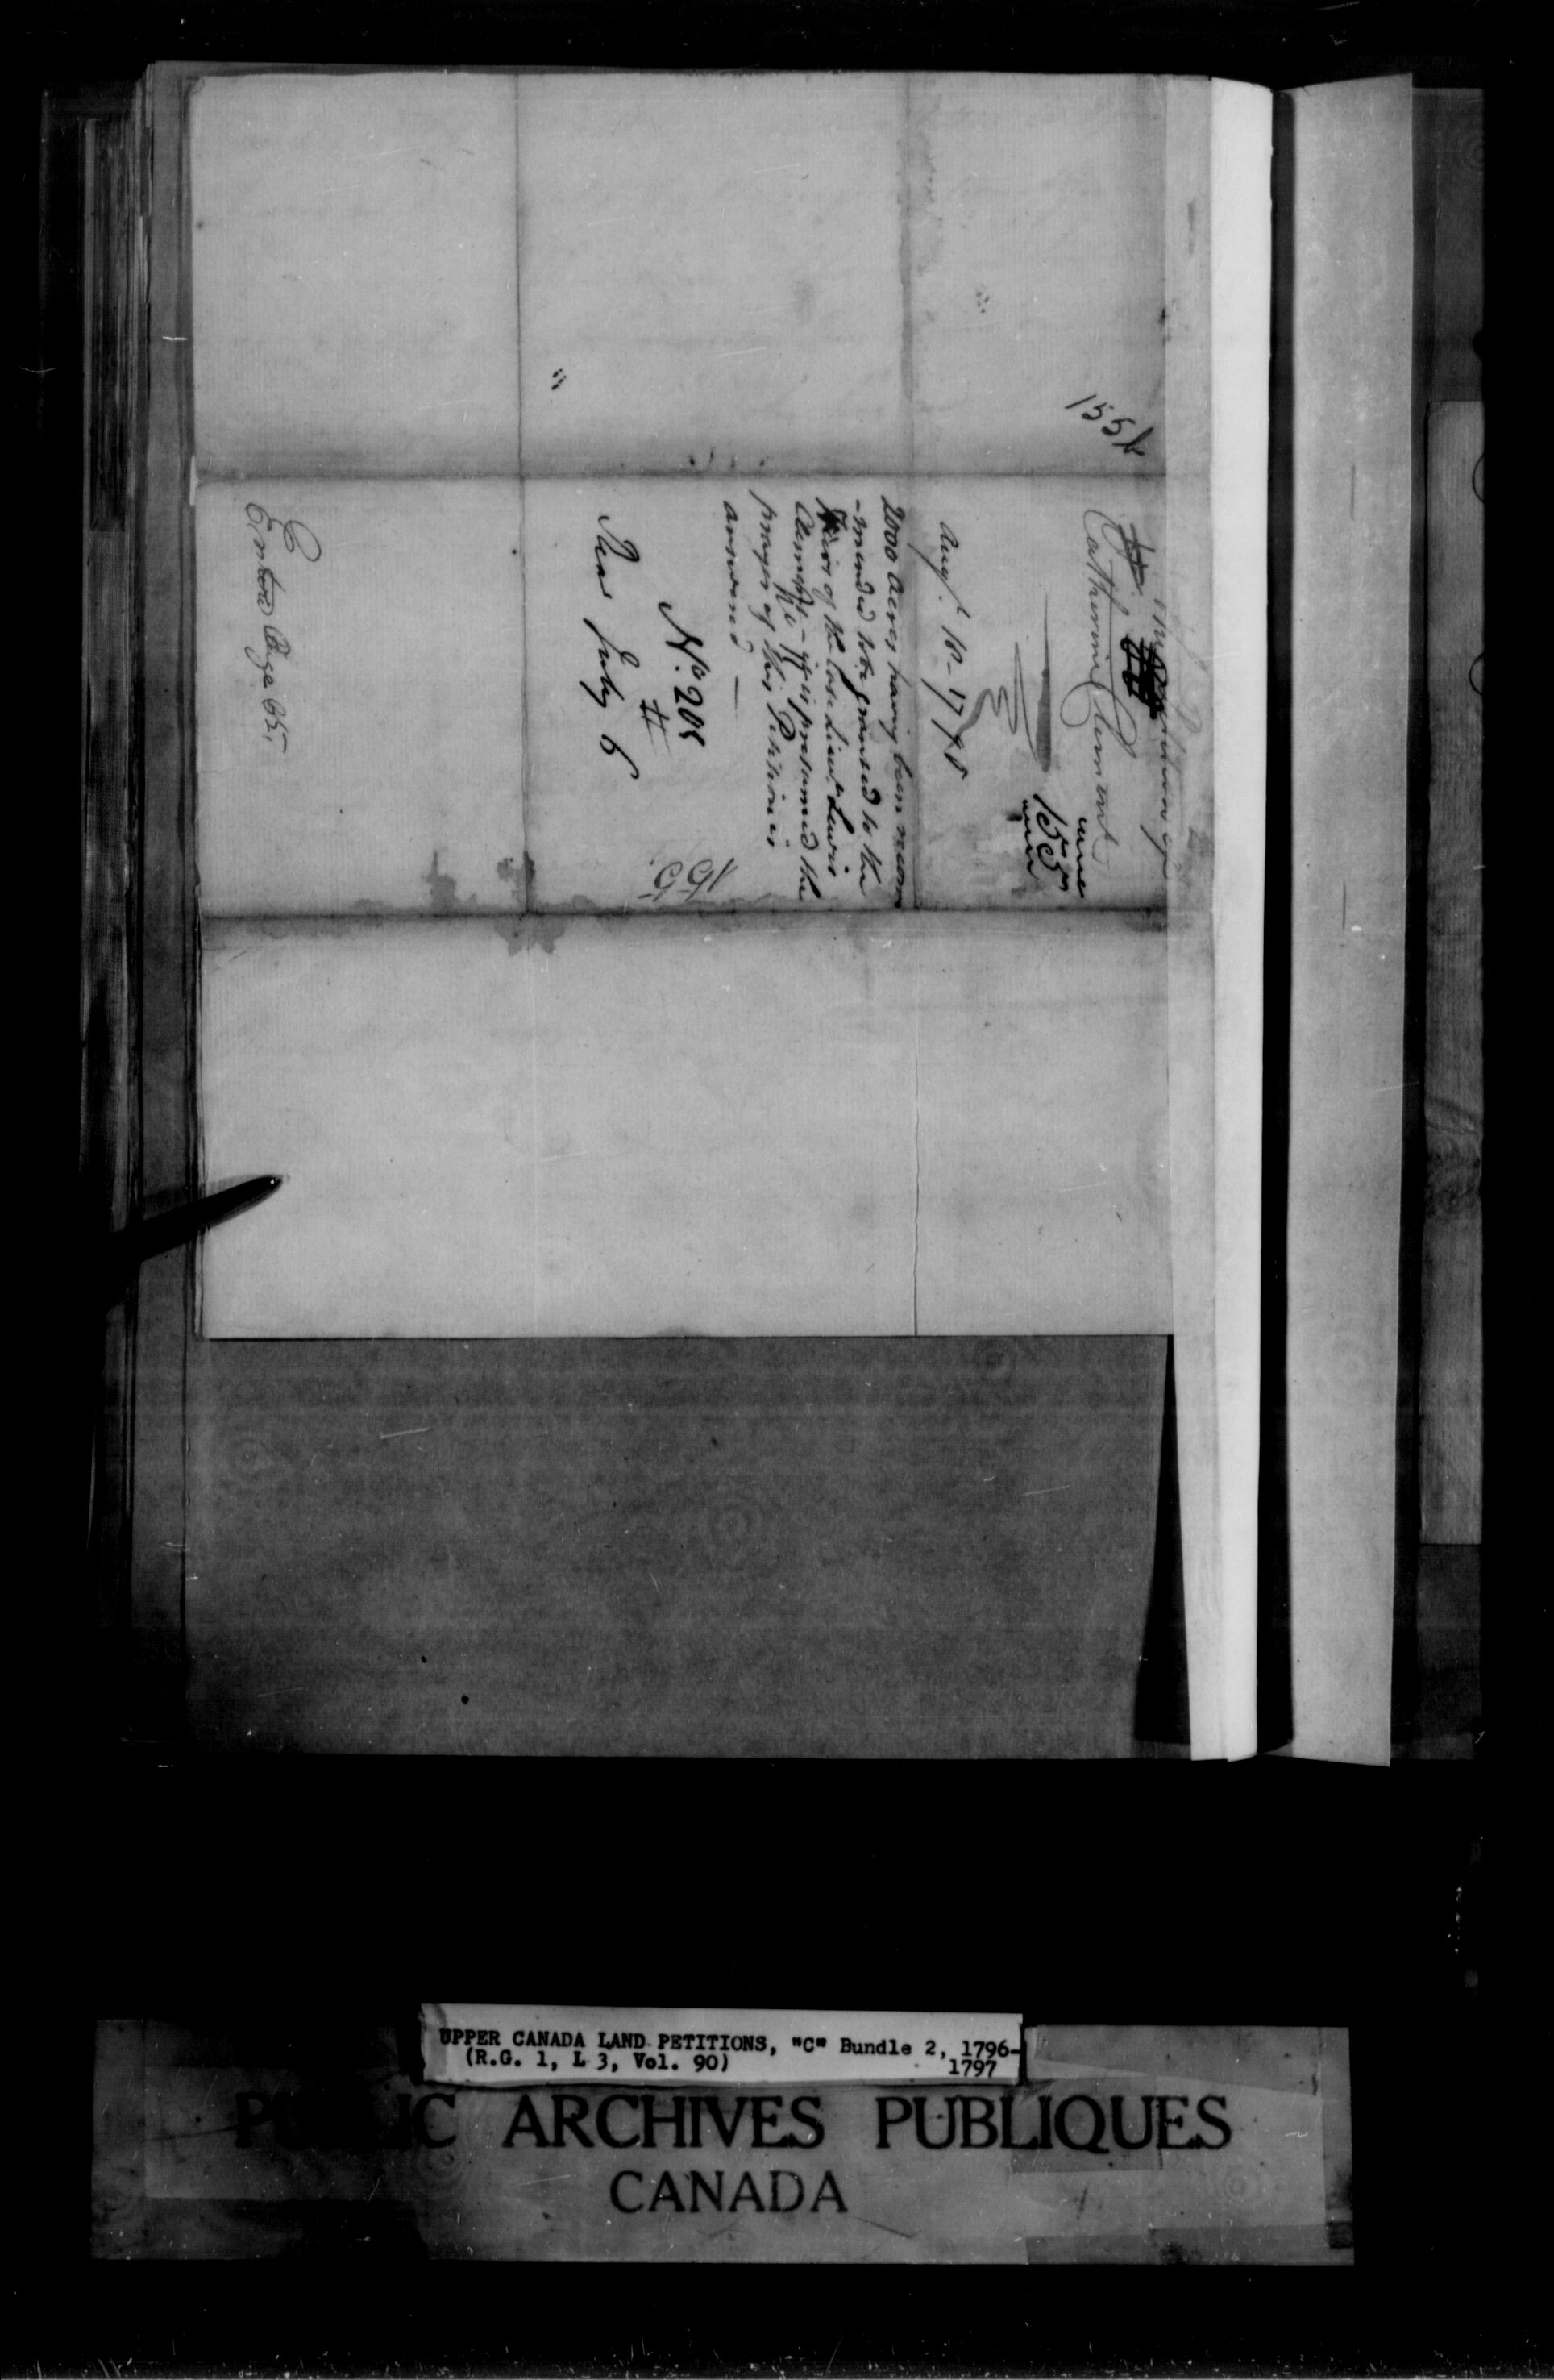 155b
Memorial of
Catherine Clement
155
Augt. 10 - 1795
2000 acres having been recom
-mended to be granted to the
Heirs of the late Lieut. Lewis
Clement - it is presumed the
prayer of this Petition is
answered —
No. 208
155
July 6
Entred Page 65
UPPER CANADA LAND PETITIONS, "C" Bundle 2, 1796-
(R.G. 1, L 3, Vol. 90) 1797
ARCHIVES PUBLIQUES
CANADA